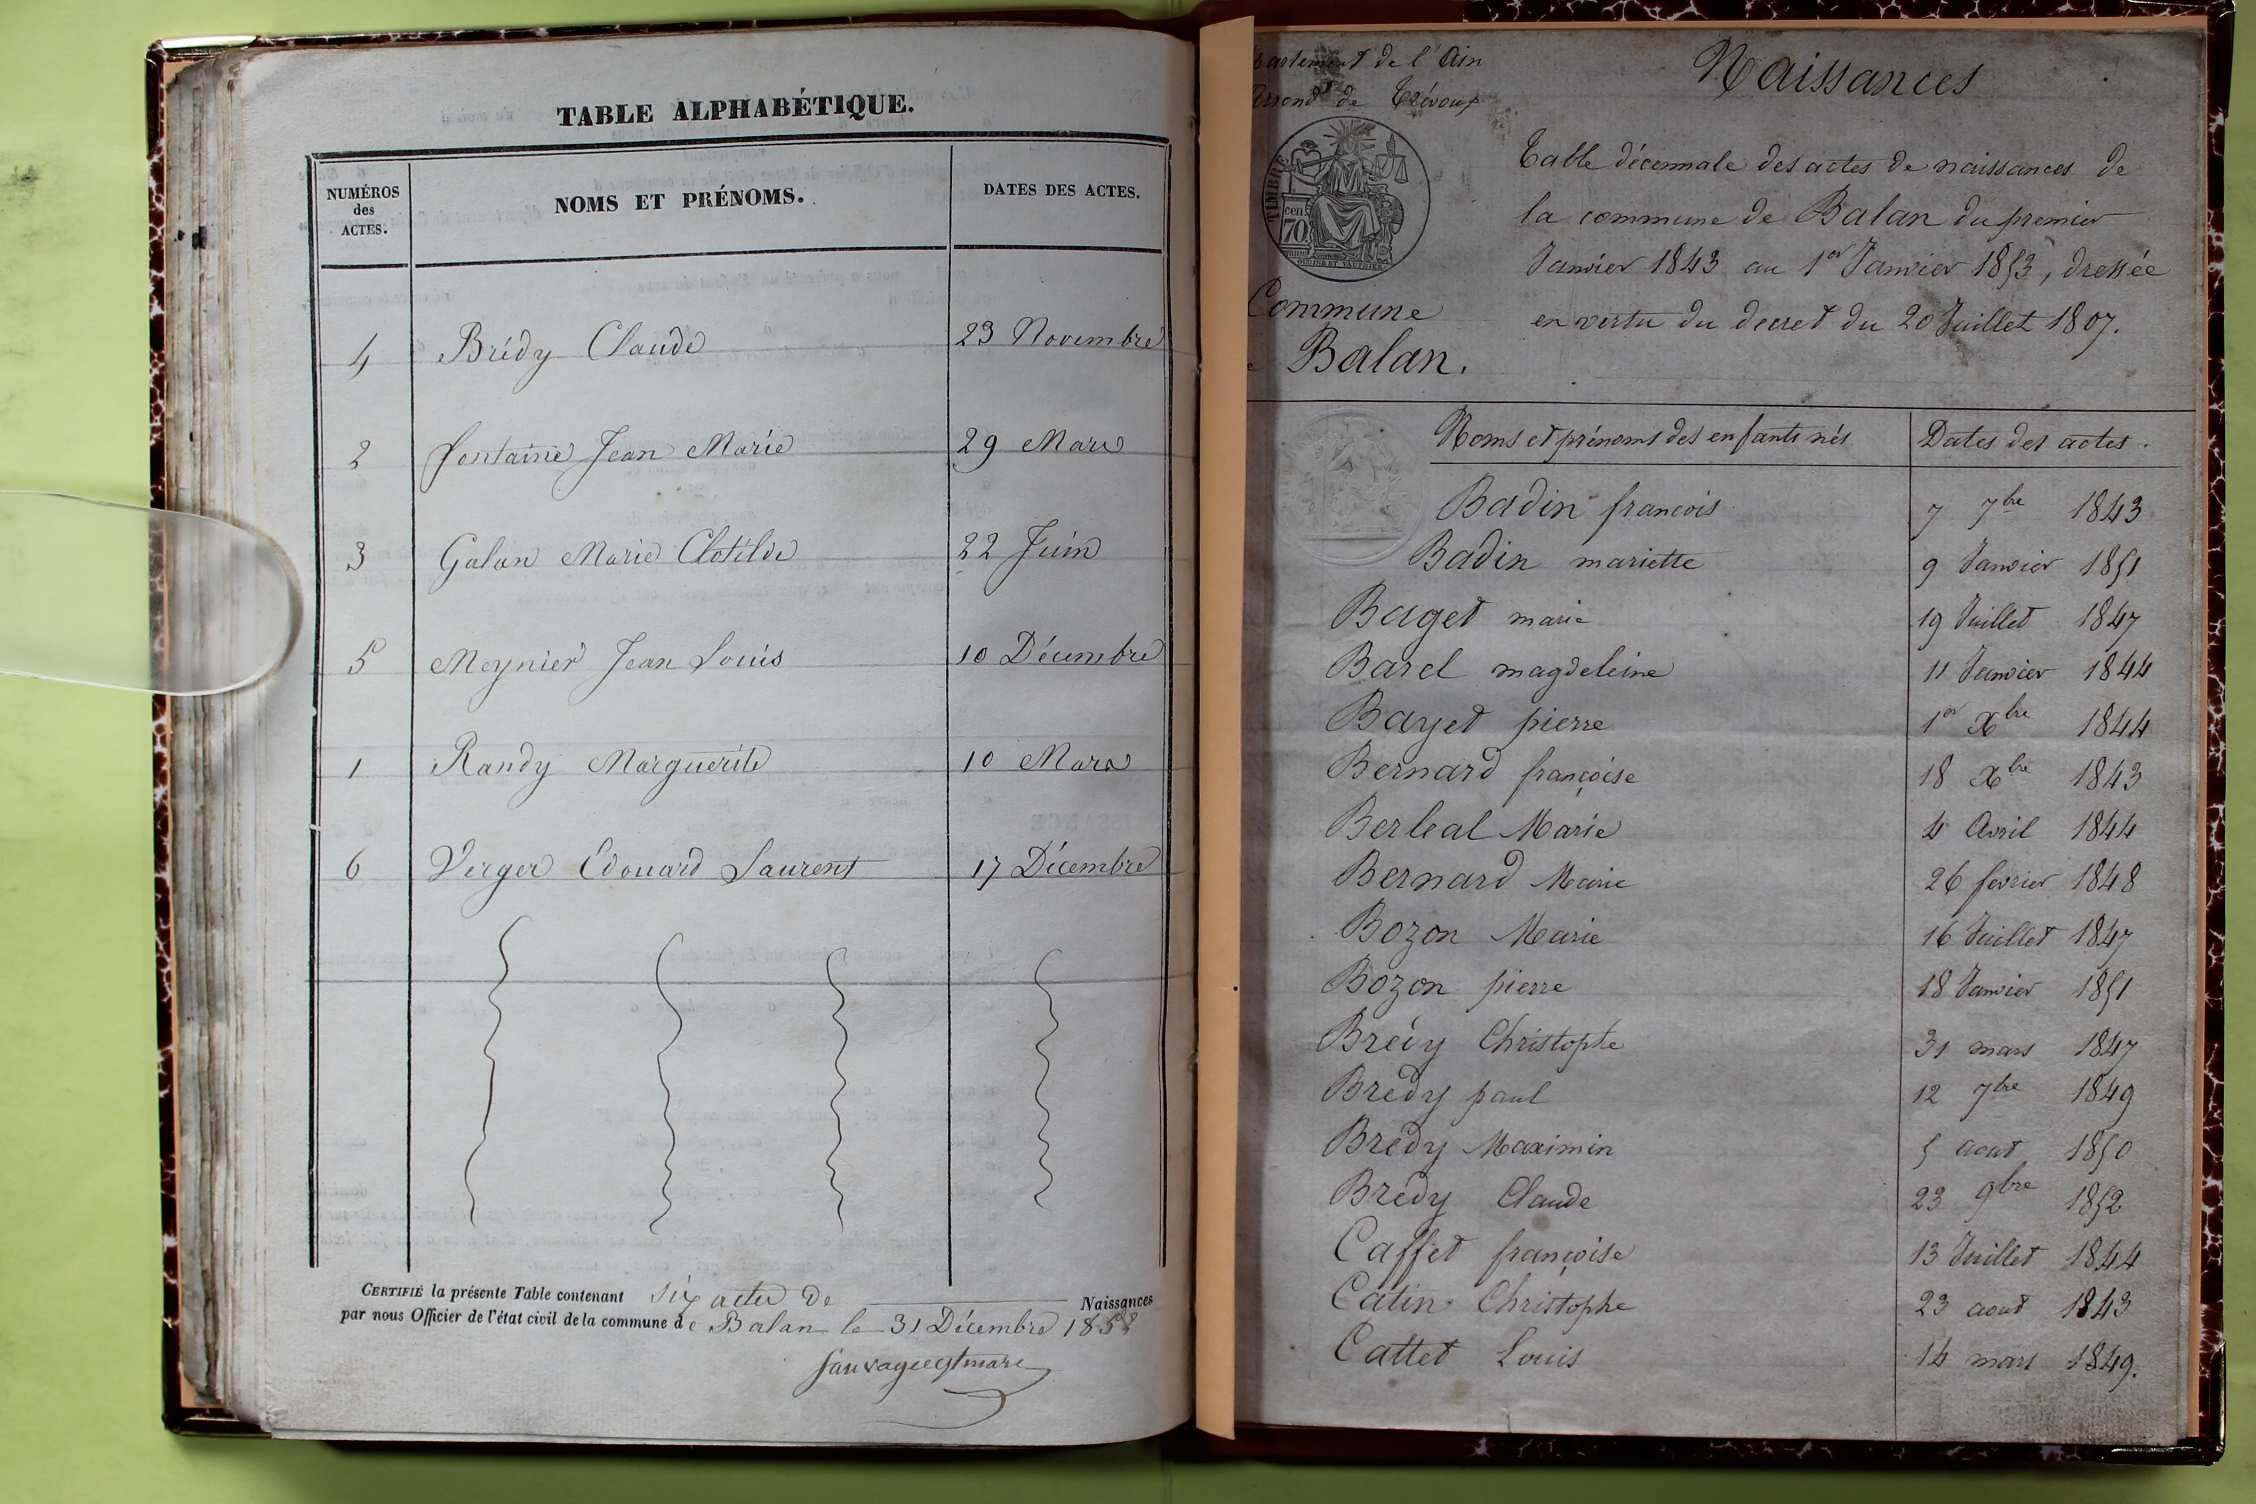 TABLE ALPHABÉTIQUE.
NUMÉROS des ACTES. NOMS ET PRÉNOMS. DATES DES ACTES.
4 Brédy Claude 23 Novembre
2 fontaine Jean Marie 29 Mars
3 Galan Marie Clotilde 22 Juin
5 Meynier Jean Louis 10 Décembre
1 Randy Marguerite 10 Mars
6 Verger Edouard Laurent 17 Décembre
CERTIFIÉ la présente Table contenant six actes de Naissances
par nous Officier de l'état civil de la commune de Balan le 31 Décembre 1852
partement de l'Ain
Arrondt de Trévoux
TIMBRE
70 cen
Commune
Balan.
Naissances
Table décennale des actes de naissances de
la commune de Balan du premier
Janvier 1843 au 1er Janvier 1853, dressée
en vertu du decret du 20 Juillet 1807.
Noms et prénoms des enfants nés Dates des actes.
Badin francois 7 7bre 1843
Badin mariette 9 Janvier 1851
Baget marie 19 Juillet 1847
Barel magdeleine 11 Janvier 1844
Bayet pierre 1er Xbre 1844
Bernard françoise 18 Xbre 1843
Berleal Marie 4 Avril 1844
Bernard Marie 26 fevrier 1848
Bozon Marie 16 Juillet 1847
Bozon pierre 18 Janvier 1851
Brédy Christophe 31 mars 1847
Brédy paul 12 7bre 1849
Brédy Maximin 5 aout 1850
Brédy Claude 23 9bre 1852
Caffet françoise 13 Juillet 1844
Catin Christophe 23 aout 1843
Cattet Louis 14 mars 1849.